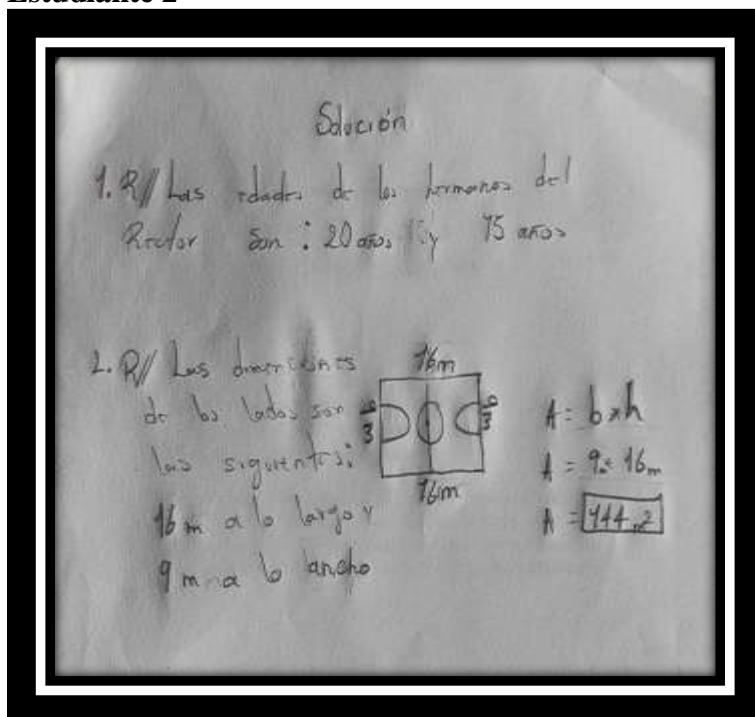 Estudiante 2
Solución
1. R// Las edades de los hermanos del
Rector son : 20 años y 15 años
2. R// Las dimensiones
de los lados son
las siguientes:
16 m a lo largo y
9 m a lo ancho
16m
9 m
9 m
16m
A = b x h
A = 9 x 16m
A = 144 m2